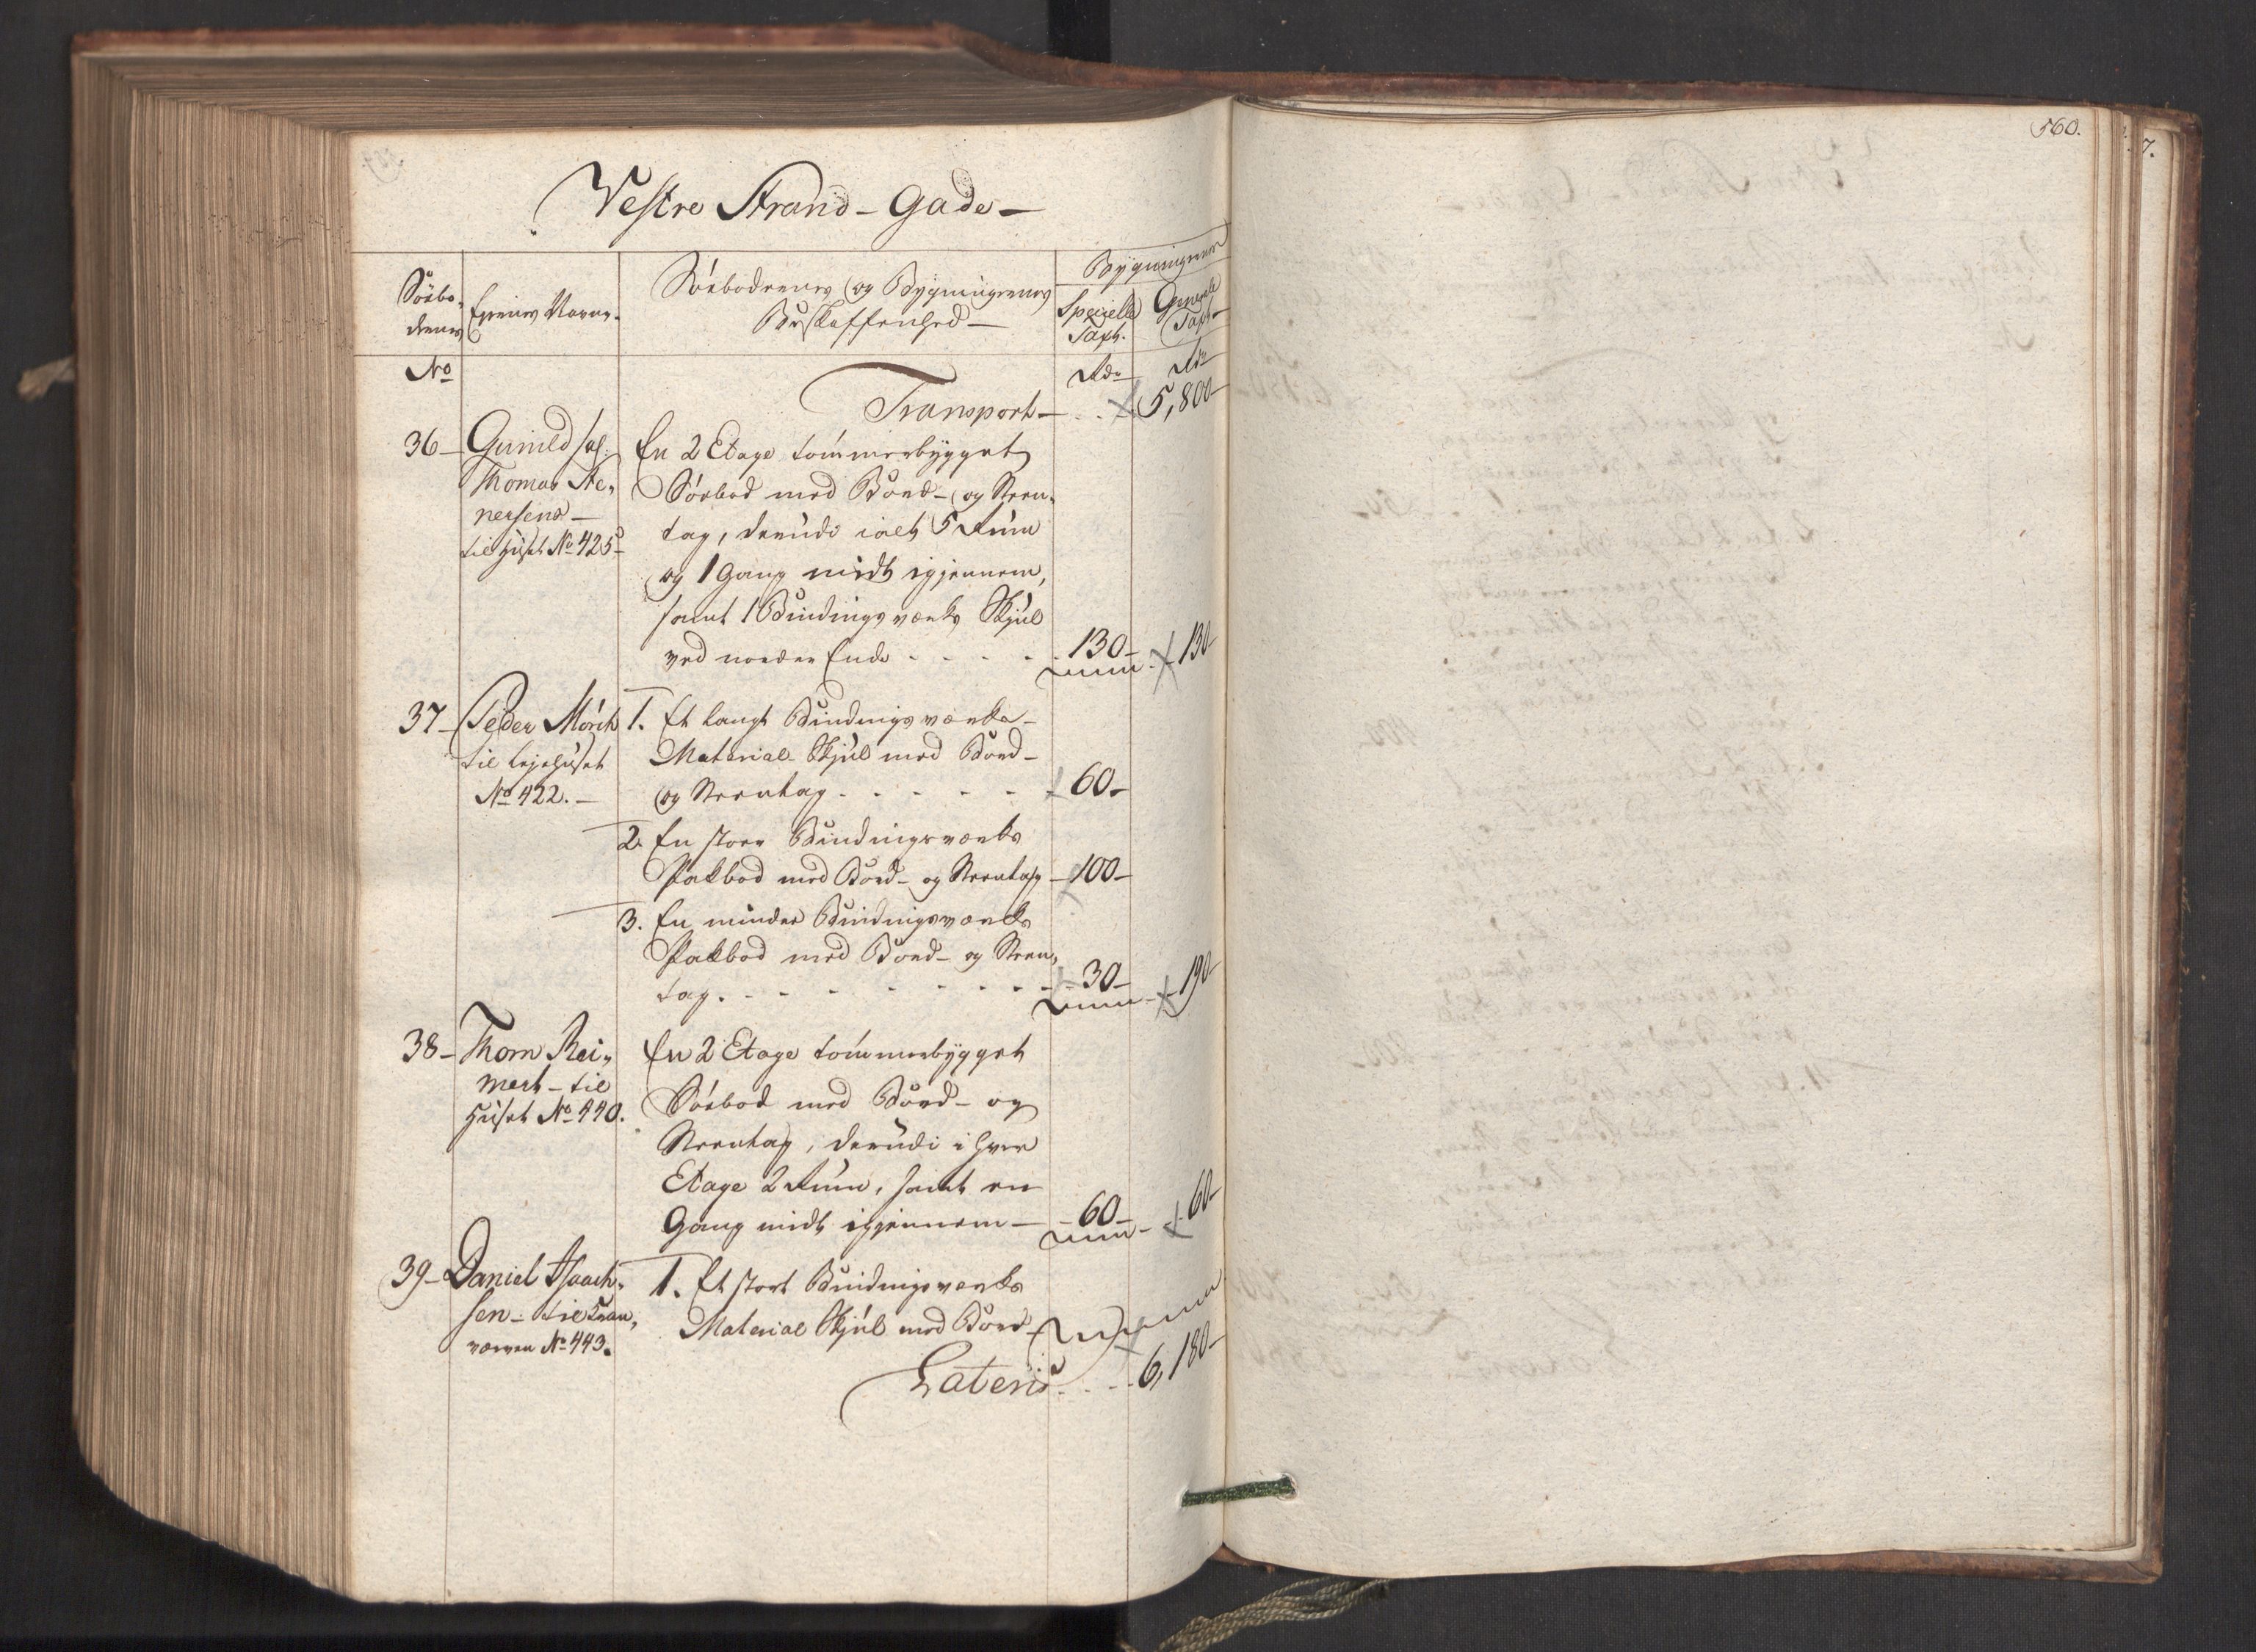 560.
7.
Vestre Strand-Gade-
Söebo-
denes
Eyernes Navne.
Söebodernes og Bygningernes
Beskaffenhed-
Bygningernes
Specielle
Taxt.
Generale
Taxt.
No
Rdr
Rdr
Transport- 5,800-
36- Gunild sal.
Thomas Ste-
nersens-
til Huset No 425-
En 2 Etage tömmerbygget
Söebod med Bord- og Steen-
tag, derudi i alt 5 Rum
og 1 Gang midt igjennem,
samt 1 Bindingsværks Skjul
ved norder Ende - - - - 130- 130-
37- Peder Mörch
til Lejehuset
No 422.-
1. Et langt Bindingsværks-
Material-Skjul med Bord-
og Steentag - - - - - 60-
2. En stor Bindingsværks
Pakbod med Bord- og Steentag - 100-
3. En mindre Bindingsværks
Pakbod med Bord- og Steen-
tag. - - - - - - - - 30- 190-
38- Thom Rei-
mert- til
Huset No 440.
En 2 Etage tömmerbygget
Söebod med Bord- og
Steentag, derudi i hver
Etage 2 Rum, samt en
Gang midt igjennem- - 60- 60-
39- Daniel Isaach-
sen- til Tran-
værven No 443.
1. Et stort Bindingsværks
Material Skjul med Bord-
Lateris - - - 6,180-